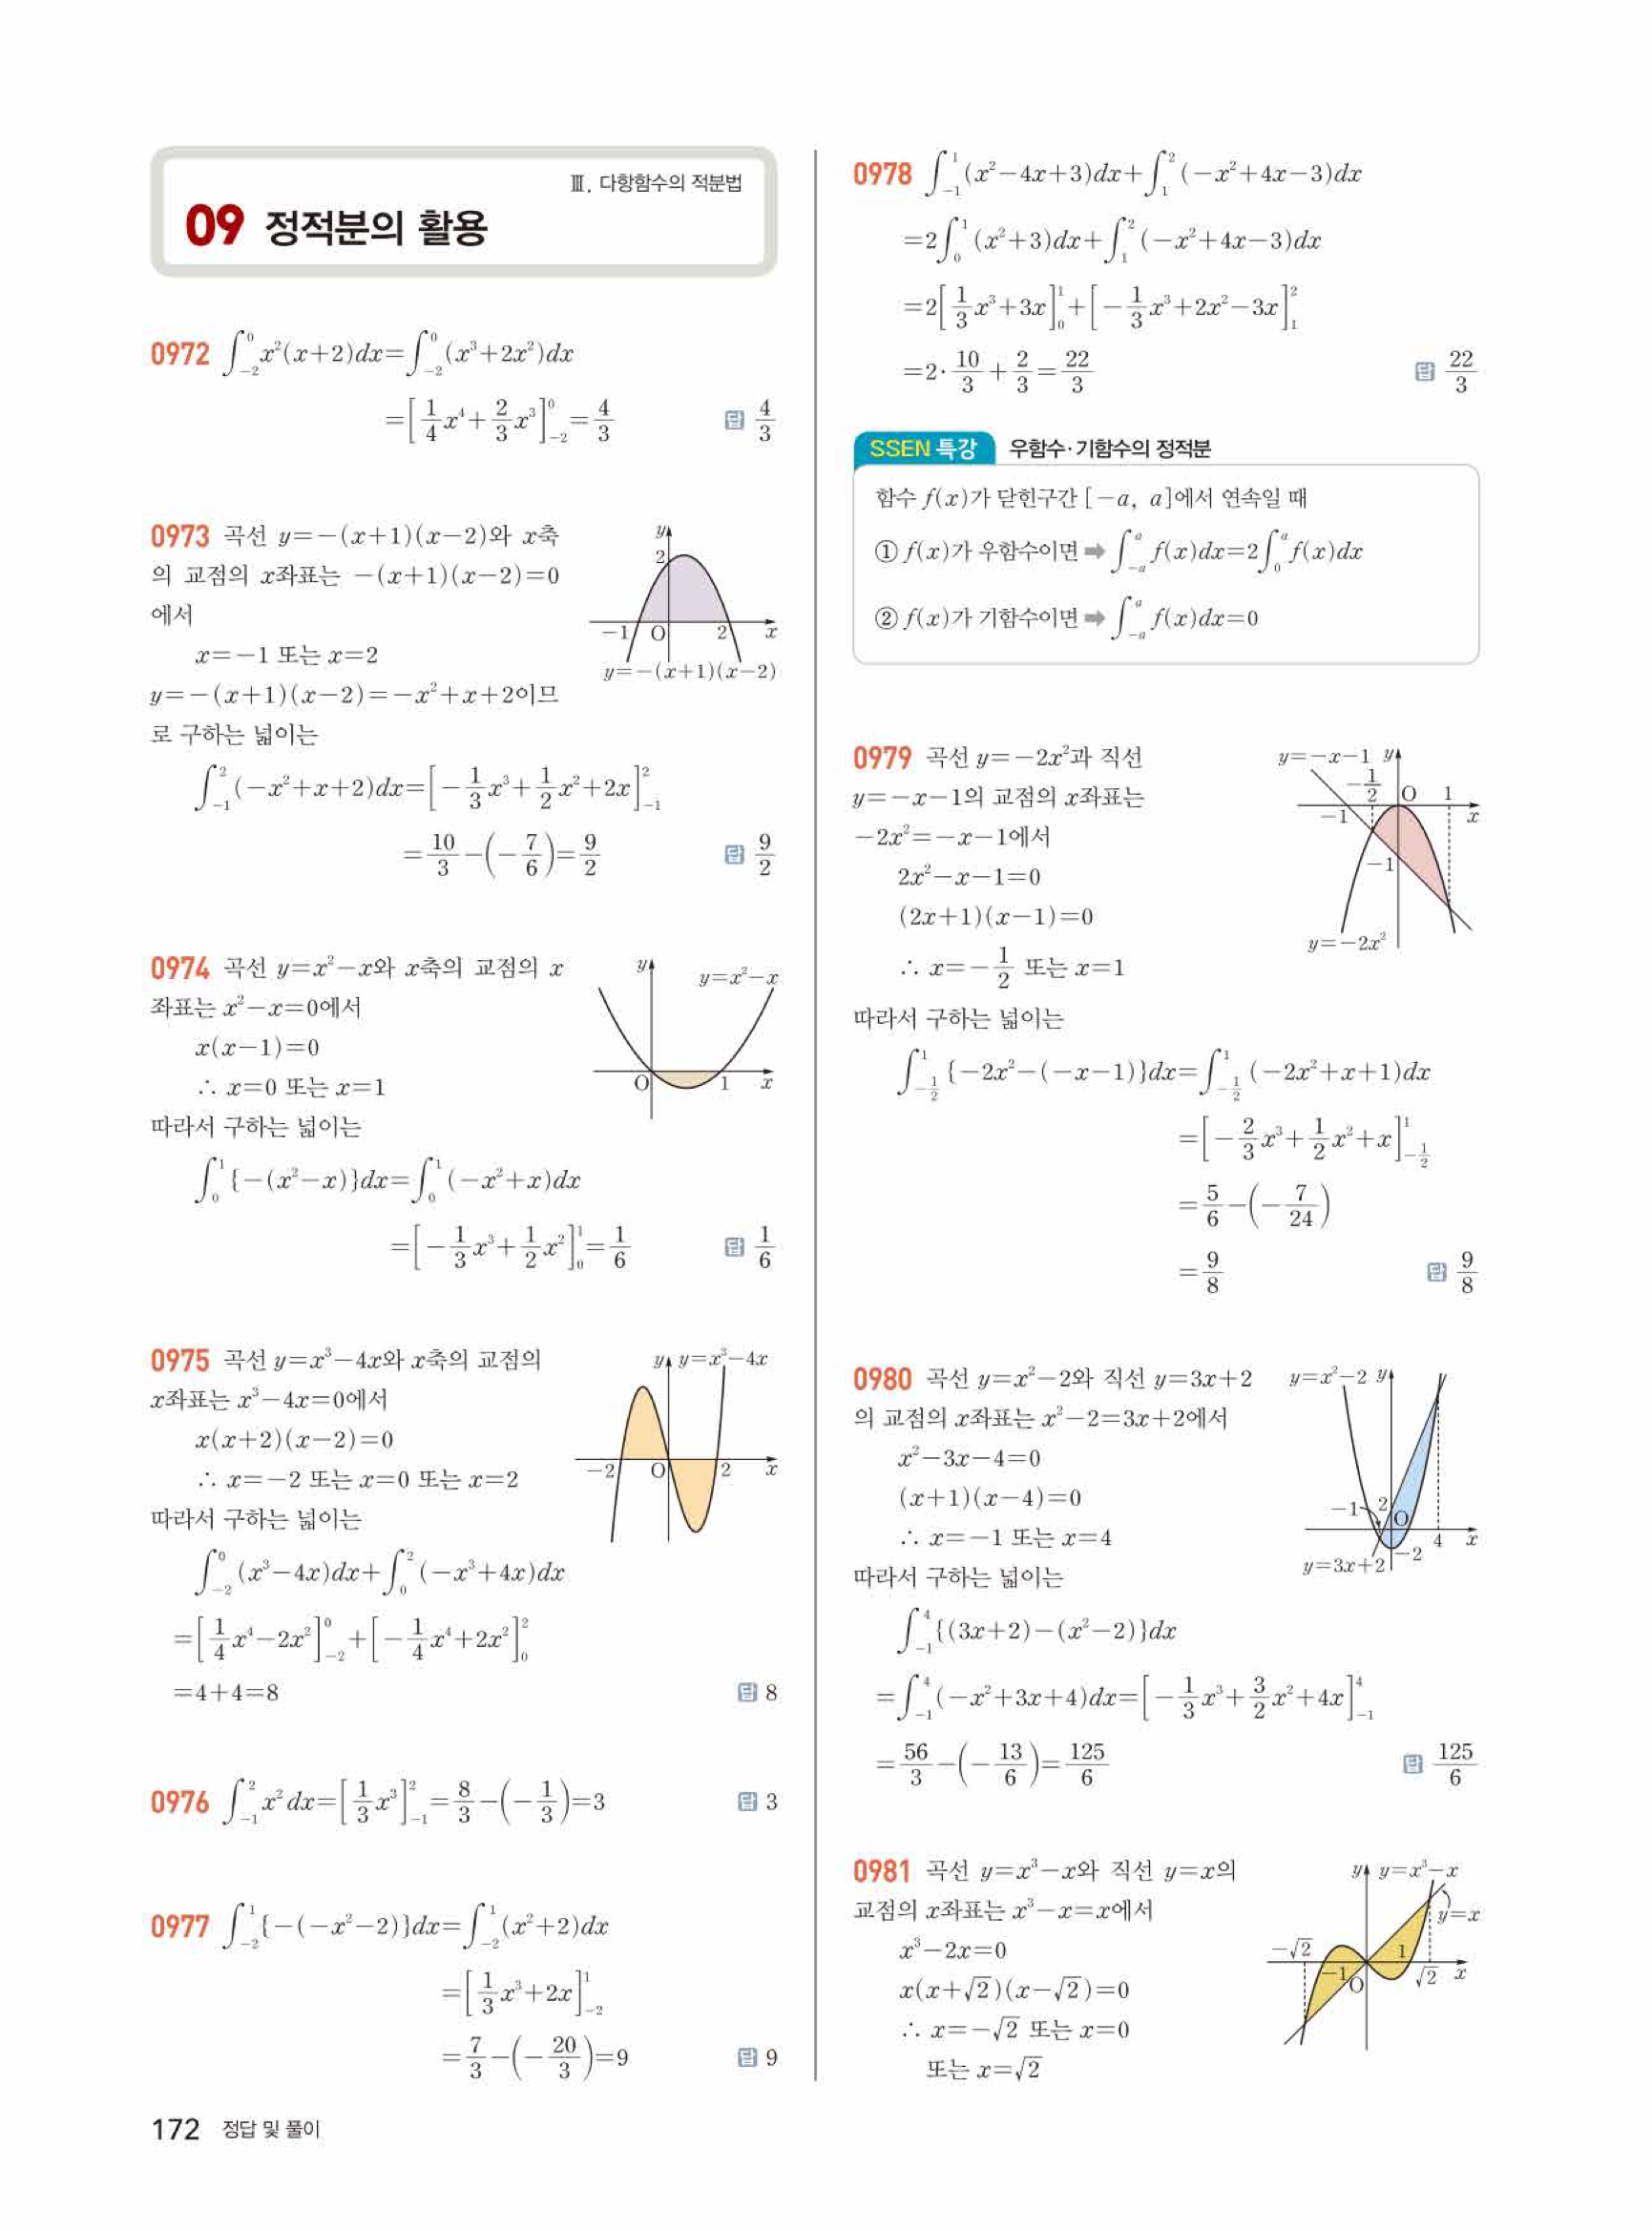 Ⅲ. 다항함수의 적분법
09 정적분의 활용
0972 ∫_{-2}^{0} x²(x+2)dx=∫_{-2}^{0} (x³+2x²)dx
=[1/4 x⁴+2/3 x³]_{-2}^{0}=4/3 답 4/3
0973 곡선 y=-(x+1)(x-2)와 x축
의 교점의 x좌표는 -(x+1)(x-2)=0
에서
x=-1 또는 x=2
y=-(x+1)(x-2)=-x²+x+2이므
로 구하는 넓이는
y
2
-1 O 2 x
y=-(x+1)(x-2)
∫_{-1}^{2} (-x²+x+2)dx=[-1/3 x³+1/2 x²+2x]_{-1}^{2}
=10/3-(-7/6)=9/2 답 9/2
0974 곡선 y=x²-x와 x축의 교점의 x
좌표는 x²-x=0에서
x(x-1)=0
∴ x=0 또는 x=1
따라서 구하는 넓이는
y y=x²-x
O 1 x
∫_{0}^{1} {-(x²-x)}dx=∫_{0}^{1} (-x²+x)dx
=[-1/3 x³+1/2 x²]_{0}^{1}=1/6 답 1/6
0975 곡선 y=x³-4x와 x축의 교점의
x좌표는 x³-4x=0에서
x(x+2)(x-2)=0
∴ x=-2 또는 x=0 또는 x=2
따라서 구하는 넓이는
y y=x³-4x
-2 O 2 x
∫_{-2}^{0} (x³-4x)dx+∫_{0}^{2} (-x³+4x)dx
=[1/4 x⁴-2x²]_{-2}^{0}+[-1/4 x⁴+2x²]_{0}^{2}
=4+4=8 답 8
0976 ∫_{-1}^{2} x² dx=[1/3 x³]_{-1}^{2}=8/3-(-1/3)=3 답 3
0977 ∫_{-2}^{1} {-(-x²-2)}dx=∫_{-2}^{1} (x²+2)dx
=[1/3 x³+2x]_{-2}^{1}
=7/3-(-20/3)=9 답 9
0978 ∫_{-1}^{1} (x²-4x+3)dx+∫_{1}^{2} (-x²+4x-3)dx
=2∫_{0}^{1} (x²+3)dx+∫_{1}^{2} (-x²+4x-3)dx
=2[1/3 x³+3x]_{0}^{1}+[-1/3 x³+2x²-3x]_{1}^{2}
=2·10/3+2/3=22/3 답 22/3
SSEN 특강 우함수·기함수의 정적분
함수 f(x)가 닫힌구간 [-a, a]에서 연속일 때
① f(x)가 우함수이면 ➡ ∫_{-a}^{a} f(x)dx=2∫_{0}^{a} f(x)dx
② f(x)가 기함수이면 ➡ ∫_{-a}^{a} f(x)dx=0
0979 곡선 y=-2x²과 직선
y=-x-1의 교점의 x좌표는
-2x²=-x-1에서
2x²-x-1=0
(2x+1)(x-1)=0
∴ x=-1/2 또는 x=1
따라서 구하는 넓이는
y=-x-1 y
-1/2 O 1
-1 x
-1
y=-2x²
∫_{-1/2}^{1} {-2x²-(-x-1)}dx=∫_{-1/2}^{1} (-2x²+x+1)dx
=[-2/3 x³+1/2 x²+x]_{-1/2}^{1}
=5/6-(-7/24)
=9/8 답 9/8
0980 곡선 y=x²-2와 직선 y=3x+2
의 교점의 x좌표는 x²-2=3x+2에서
x²-3x-4=0
(x+1)(x-4)=0
∴ x=-1 또는 x=4
따라서 구하는 넓이는
y=x²-2 y
-1 2 O
4 x
y=3x+2 -2
∫_{-1}^{4} {(3x+2)-(x²-2)}dx
=∫_{-1}^{4} (-x²+3x+4)dx=[-1/3 x³+3/2 x²+4x]_{-1}^{4}
=56/3-(-13/6)=125/6 답 125/6
0981 곡선 y=x³-x와 직선 y=x의
교점의 x좌표는 x³-x=x에서
x³-2x=0
x(x+√2)(x-√2)=0
∴ x=-√2 또는 x=0
또는 x=√2
y y=x³-x
y=x
-√2 1
-1 O √2 x
172 정답 및 풀이